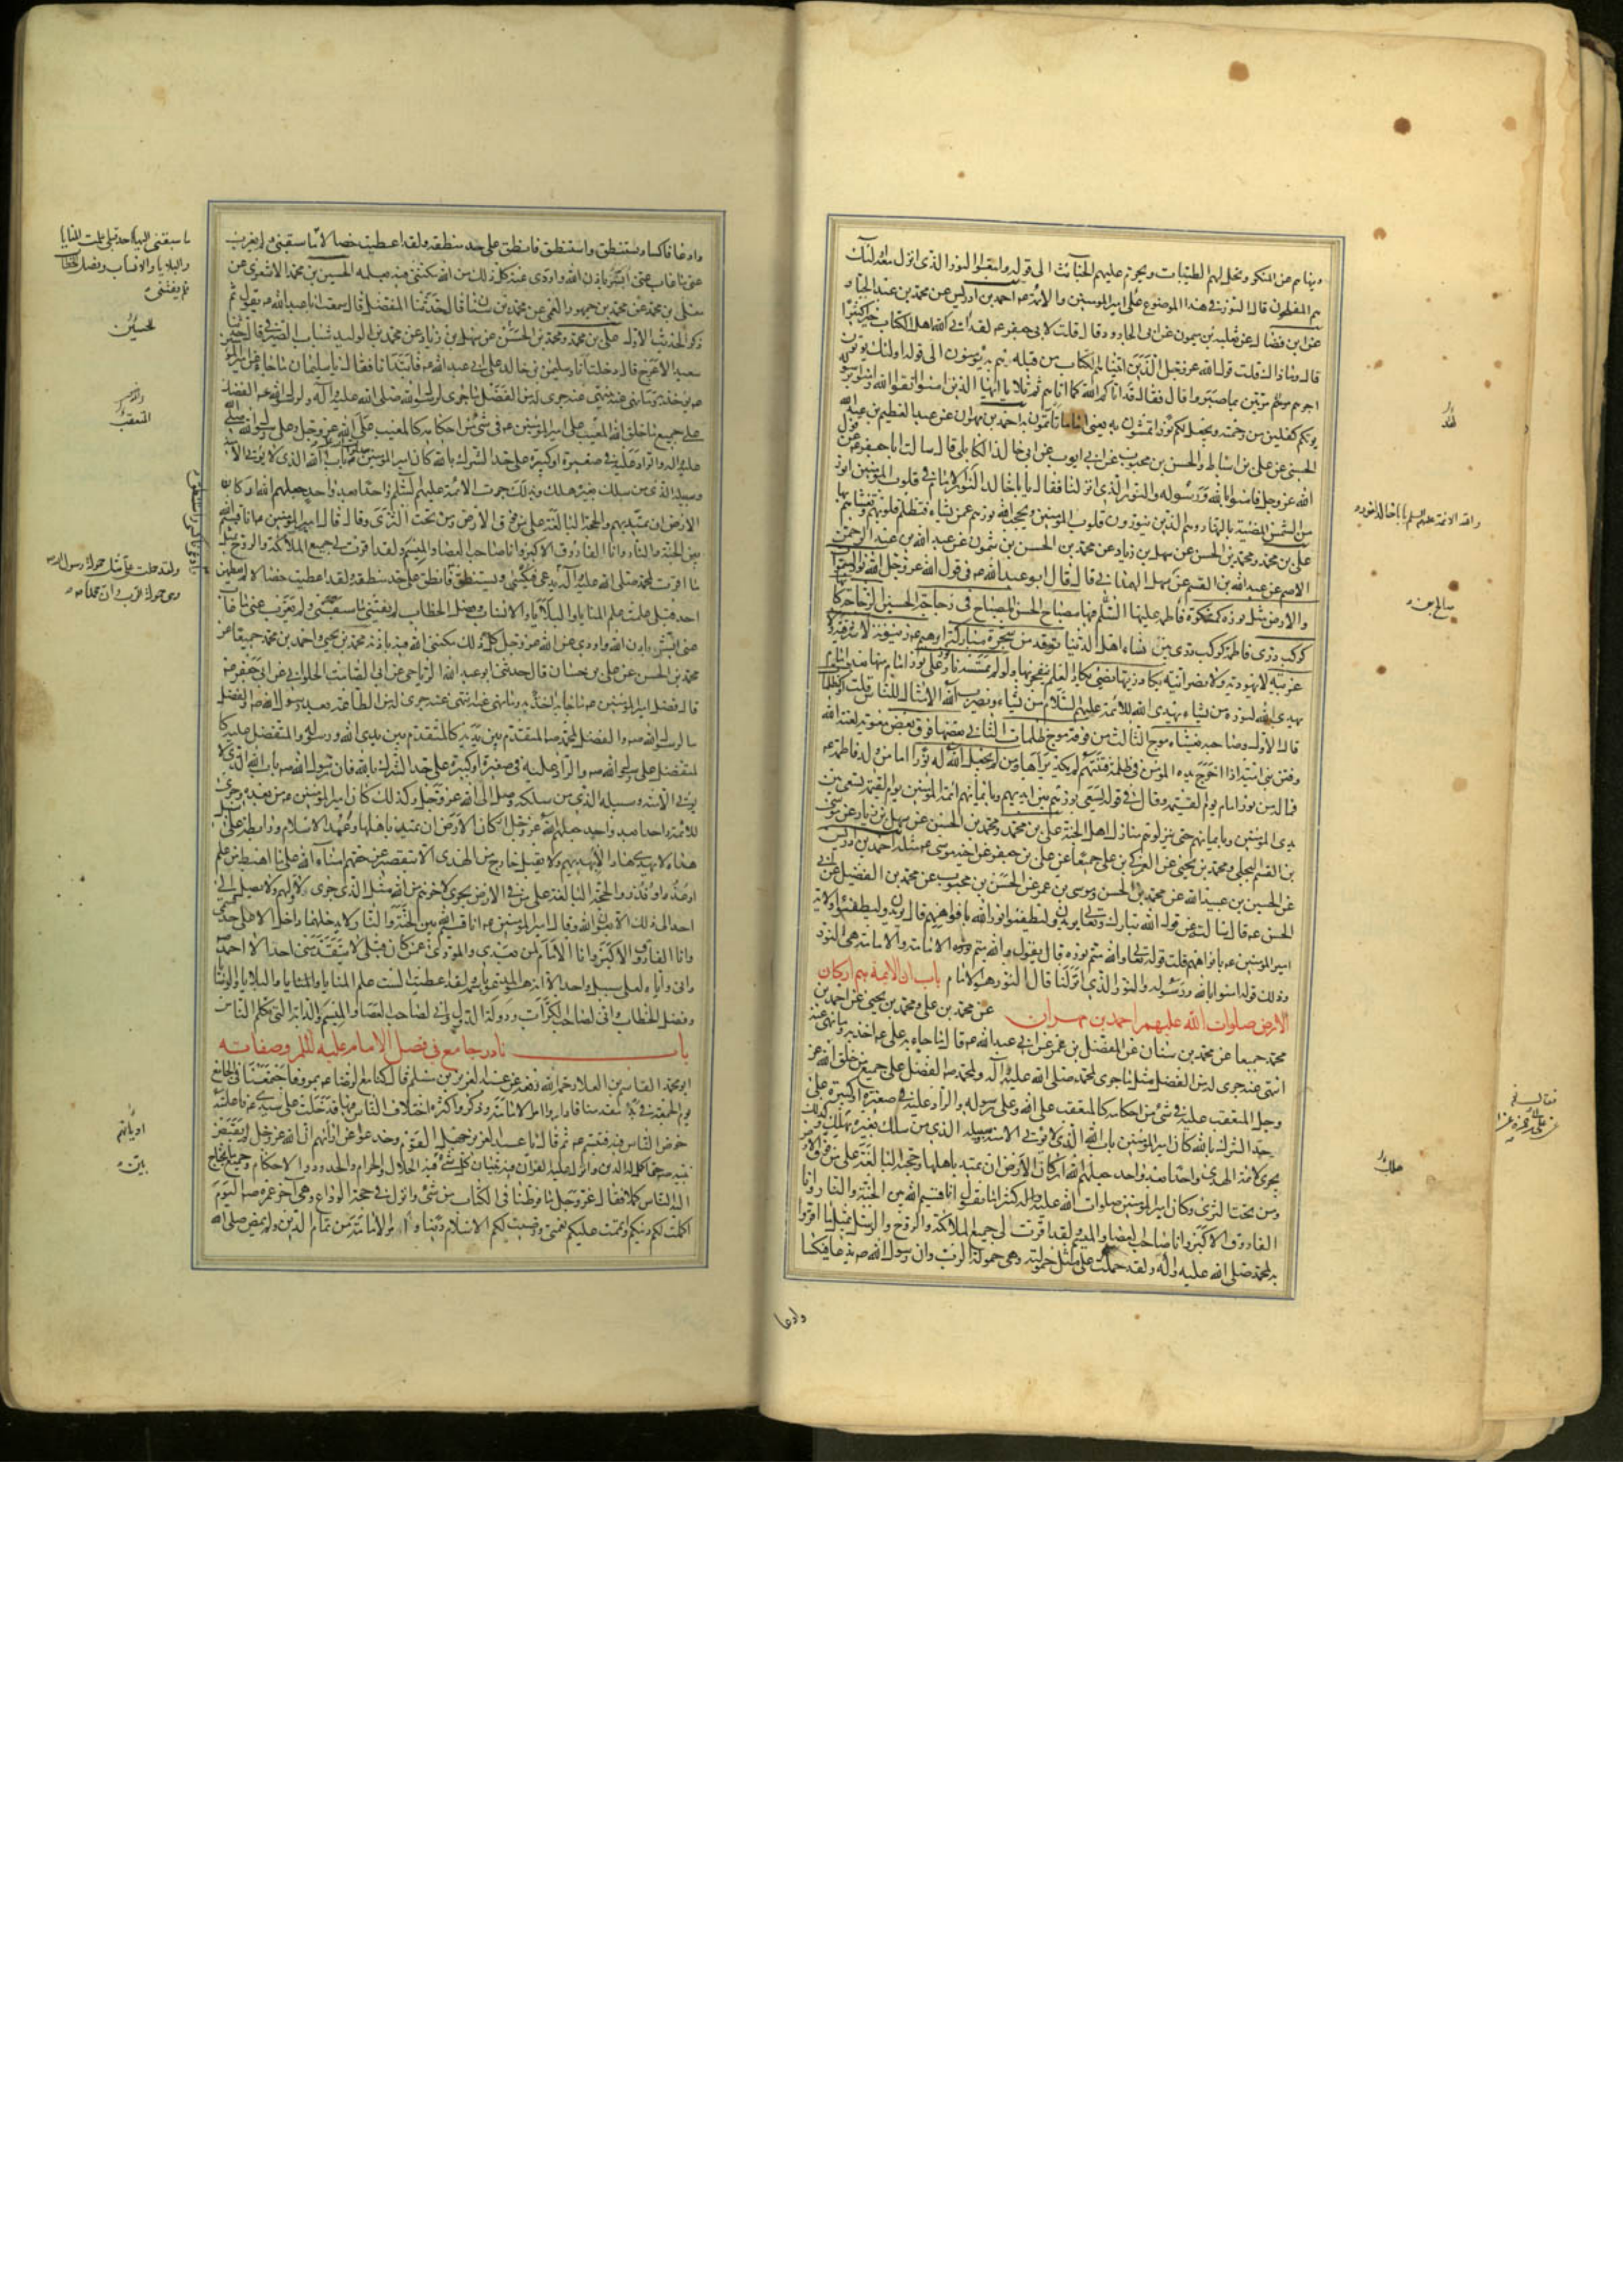 وينهاهم عن المنكر ويحل لهم الطيبات ويحرم عليهم الخبائث الى قوله واتبعوا النور الذي انزل معه اولئك
هم المفلحون قال النور في هذا الموضع على امير المؤمنين والائمة احمد بن ادريس عن محمد بن عبد الجبار
عن ابن فضال عن ثعلبة بن ميمون عن ابي الجارود قال قلت لابي جعفر لقد اتى الله اهل الكتاب خيرا كثيرا
قال وما ذاك قلت قول الله عز وجل الذين اتيناهم الكتاب من قبله هم به يؤمنون الى قوله اولئك يؤتون
اجرهم مرتين بما صبروا قال فقال قد اتاكم الله كما اتاهم ثم تلا يا ايها الذين امنوا اتقوا الله وامنوا برسوله
يؤتكم كفلين من رحمته ويجعل لكم نورا تمشون به يعني اماما تأتمون به احمد بن مهران عن عبد العظيم بن عبد الله
الحسني عن علي بن اسباط والحسن بن محبوب عن ابي ايوب عن ابي خالد الكابلي قال سالت ابا جعفر عن قول
الله عز وجل فامنوا بالله ورسوله والنور الذي انزلنا فقال يا با خالد النور الائمة في قلوب المؤمنين انور
من الشمس المضيئة بالنهار وهم الذين ينورون قلوب المؤمنين ويحجب الله نورهم عمن يشاء فتظلم قلوبهم ويغشاهم بها
علي بن محمد ومحمد بن الحسن عن سهل بن زياد عن محمد بن الحسن بن شمون عن عبد الله بن عبد الرحمن
الاصم عن عبد الله بن القسم عن سهل الهمداني قال قال ابو عبد الله في قول الله عز وجل الله نور السموات
والارض مثل نوره كمشكوة فاطمة عليها السلم فيها مصباح الحسن المصباح في زجاجة الحسين الزجاجة كانها
كوكب دري فاطمة كوكب دري بين نساء اهل الدنيا توقد من شجرة مباركة ابرهيم زيتونة لا شرقية ولا
غربية لا يهودية ولا نصرانية يكاد زيتها يضيئ يكاد العلم ينفجر بها ولو لم تمسسه نار نور على نور امام منها بعد امام
يهدي الله لنوره من يشاء يهدي الله للائمة عليهم السلام من يشاء ويضرب الله الامثال للناس قلت او كظلمات
قال الاول وصاحبه يغشاه موج الثالث من فوقه موج ظلمات الثاني بعضها فوق بعض معوية لعنه الله
وفتن بني امية اذا اخرج يده المؤمن في ظلمة فتنتهم لم يكد يراها ومن لم يجعل الله له نورا اماما من ولد فاطمة
فما له من نور امام يوم القيمة وقال في قوله يسعى نورهم بين ايديهم وبايمانهم ائمة المؤمنين يوم القيمة تسعى بين
يدي المؤمنين وبايمانهم حتى ينزلوهم منازل اهل الجنة علي بن محمد ومحمد بن الحسن عن سهل بن زياد عن موسى
بن القسم البجلي ومحمد بن يحيى عن العمركي بن علي جميعا عن علي بن جعفر عن اخيه موسى مثله احمد بن ادريس
عن الحسين بن عبيد الله عن محمد بن الحسن وموسى بن عمر عن الحسن بن محبوب عن محمد بن الفضيل عن ابي
الحسن قال سالته عن قول الله تبارك وتعالى يريدون ليطفئوا نور الله بافواههم قال يريدون ليطفئوا ولاية
امير المؤمنين بافواههم قلت قوله تعالى والله متم نوره قال يقول والله متم الامامة والامامة هي النور
وذلك قوله امنوا بالله ورسوله والنور الذي انزلنا قال النور هو الامام باب ان الائمة هم اركان
الارض صلوات الله عليهم احمد بن مهران عن محمد بن علي ومحمد بن يحيى عن احمد بن
محمد جميعا عن محمد بن سنان عن المفضل بن عمر عن ابي عبد الله قال ما جاء به علي اخذ به وما نهى عنه
انتهي عنه جرى له من الفضل مثل ما جرى لمحمد صلى الله عليه وآله ولمحمد الفضل على جميع من خلق الله عز
وجل المتعقب عليه في شيء من احكامه كالمتعقب على الله وعلى رسوله والراد عليه في صغيرة او كبيرة على
حد الشرك بالله كان امير المؤمنين باب الله الذي لا يؤتى الا منه وسبيله الذي من سلك بغيره يهلك وكذلك
يجري لائمة الهدى واحدا بعد واحد جعلهم الله اركان الارض ان تميد باهلها وحجته البالغة على من فوق الارض
ومن تحت الثرى وكان امير المؤمنين صلوات الله عليه واله كثيرا ما يقول انا قسيم الله بين الجنة والنار وانا
الفاروق الاكبر وانا صاحب العصا والميسم ولقد اقرت لي جميع الملائكة والروح والرسل بمثل ما اقروا
به لمحمد صلى الله عليه واله ولقد حملت على مثل حمولته وهي حمولة الرب وان رسول الله يدعى فيكسا
وادعا
صالح بن
وادعا فاكسا ويستنطق واستنطق فانطق على حد منطقه ولقد اعطيت خصالا ما سبقني
معلى بن محمد عن محمد بن جمهور العمي عن محمد بن سنان قال حدثنا المفضل قال سمعت ابا عبد الله يقول ثم
ذكر الحديث الاول علي بن محمد ومحمد بن الحسن عن سهل بن زياد عن محمد بن الوليد شباب الصيرفي قال حدثنا
سعيد الاعرج قال دخلت انا وسليمن بن خالد على ابي عبد الله فابتدانا فقال يا سليمان ما جاء عن امير المؤمنين
يؤخذ به وما نهى عنه ينتهى عنه جرى له من الفضل ما جرى لرسول الله صلى الله عليه وآله ولرسول الله الفضل
على جميع من خلق الله المعيب على امير المؤمنين في شيء من احكامه كالمعيب على الله عز وجل وعلى رسوله صلى الله
عليه واله والراد عليه في صغيرة او كبيرة على حد الشرك بالله كان امير المؤمنين باب الله الذي لا يؤتى الا منه
وسبيله الذي من سلك بغيره هلك وبذلك جرت الائمة عليهم السلم واحدا بعد واحد جعلهم الله اركان
الارض ان تميد بهم والحجة البالغة على من فوق الارض ومن تحت الثرى وقال قال امير المؤمنين انا قسيم الله
بين الجنة والنار وانا الفاروق الاكبر وانا صاحب العصا والميسم ولقد اقرت لي جميع الملائكة والروح بمثل
ما اقرت لمحمد صلى الله عليه وآله يدعى فيكسى ويستنطق فانطق على حد منطقه ولقد اعطيت خصالا لم يعطهن
احد قبلي علمت علم المنايا والبلايا والانساب وفصل الخطاب لم يفتني ما سبقني ولم يعزب عني ما غاب
عني ابشر باذن الله واودي عن الله عز وجل كل ذلك مكنني الله فيه باذنه محمد بن يحيى واحمد بن محمد جميعا عن
محمد بن الحسن عن علي بن حسان قال حدثني ابو عبد الله الرياحي عن ابي الصامت الحلواني عن ابي جعفر
قال فضل امير المؤمنين ما جاء به اخذ به وما نهى عنه انتهى عنه جرى له من الطاعة بعد رسول الله
ما لرسول الله والفضل لمحمد المتقدم بين يديه كالمتقدم بين يدي الله ورسوله والمتفضل عليه كا
لمتفضل على رسول الله والراد عليه في صغيرة او كبيرة على حد الشرك بالله فان رسول الله باب الله الذي لا
يؤتى الا منه وسبيله الذي من سلكه وصل الى الله عز وجل وكذلك كان امير المؤمنين من بعده وجرى
للائمة واحدا بعد واحد جعلهم الله عز وجل اركان الارض ان تميد باهلها وعمد الاسلام ورابطة على سبيل
هداه لا يهتدي هاد الا بهديهم ولا يضل خارج من الهدى الا بتقصير عن حقهم امناء الله على ما اهبط من علم
او عذر او نذر والحجة البالغة على من في الارض يجري لاخرهم من الله مثل الذي جرى لاولهم ولا يصل
احد الى ذلك الا بعون الله وقال امير المؤمنين انا قسيم الله بين الجنة والنار لا يدخلها داخل الا على حد
وانا الفاروق الاكبر وانا الامام لمن بعدي والمودي عمن كان قبلي لا يتقدمني احد الا احمد
واني واياه لعلى سبيل واحد الا انه هو المدعو باسمه ولقد اعطيت الست علم المنايا والبلايا والوصايا
وفصل الخطاب واني لصاحب الكرات ودولة الدول واني لصاحب العصا والميسم والدابة التي تكلم الناس
باب نادر جامع في فضل الامام عليه السلم وصفاته
ابو محمد القاسم بن العلا رحمه الله رفعه عن عبد العزيز بن مسلم قال كنا مع الرضا بمرو فاجتمعنا في الجامع
يوم الجمعة في بدء مقدمنا فاداروا امر الامامة وذكروا كثرة اختلاف الناس فيها فدخلت على سيدي فاعلمته
خوض الناس فيه فتبسم ثم قال يا عبد العزيز جهل القوم وخدعوا عن اديانهم ان الله عز وجل لم يقبض
نبيه حتى اكمل له الدين وانزل عليه القران فيه تبيان كل شيء فيه الحلال والحرام والحدود والاحكام وجميع ما يحتاج
اليه الناس كملا فقال عز وجل ما فرطنا في الكتاب من شيء وانزل في حجة الوداع وهي آخر عمره اليوم
اكملت لكم دينكم واتممت عليكم نعمتي ورضيت لكم الاسلام دينا وامر الامامة من تمام الدين ولم يمض صلى الله
ما سبقني اليها احد قبلي علمت المنايا
والبلايا والانساب وفصل الخطاب
فلم يفتني
الحسين
المتعقب